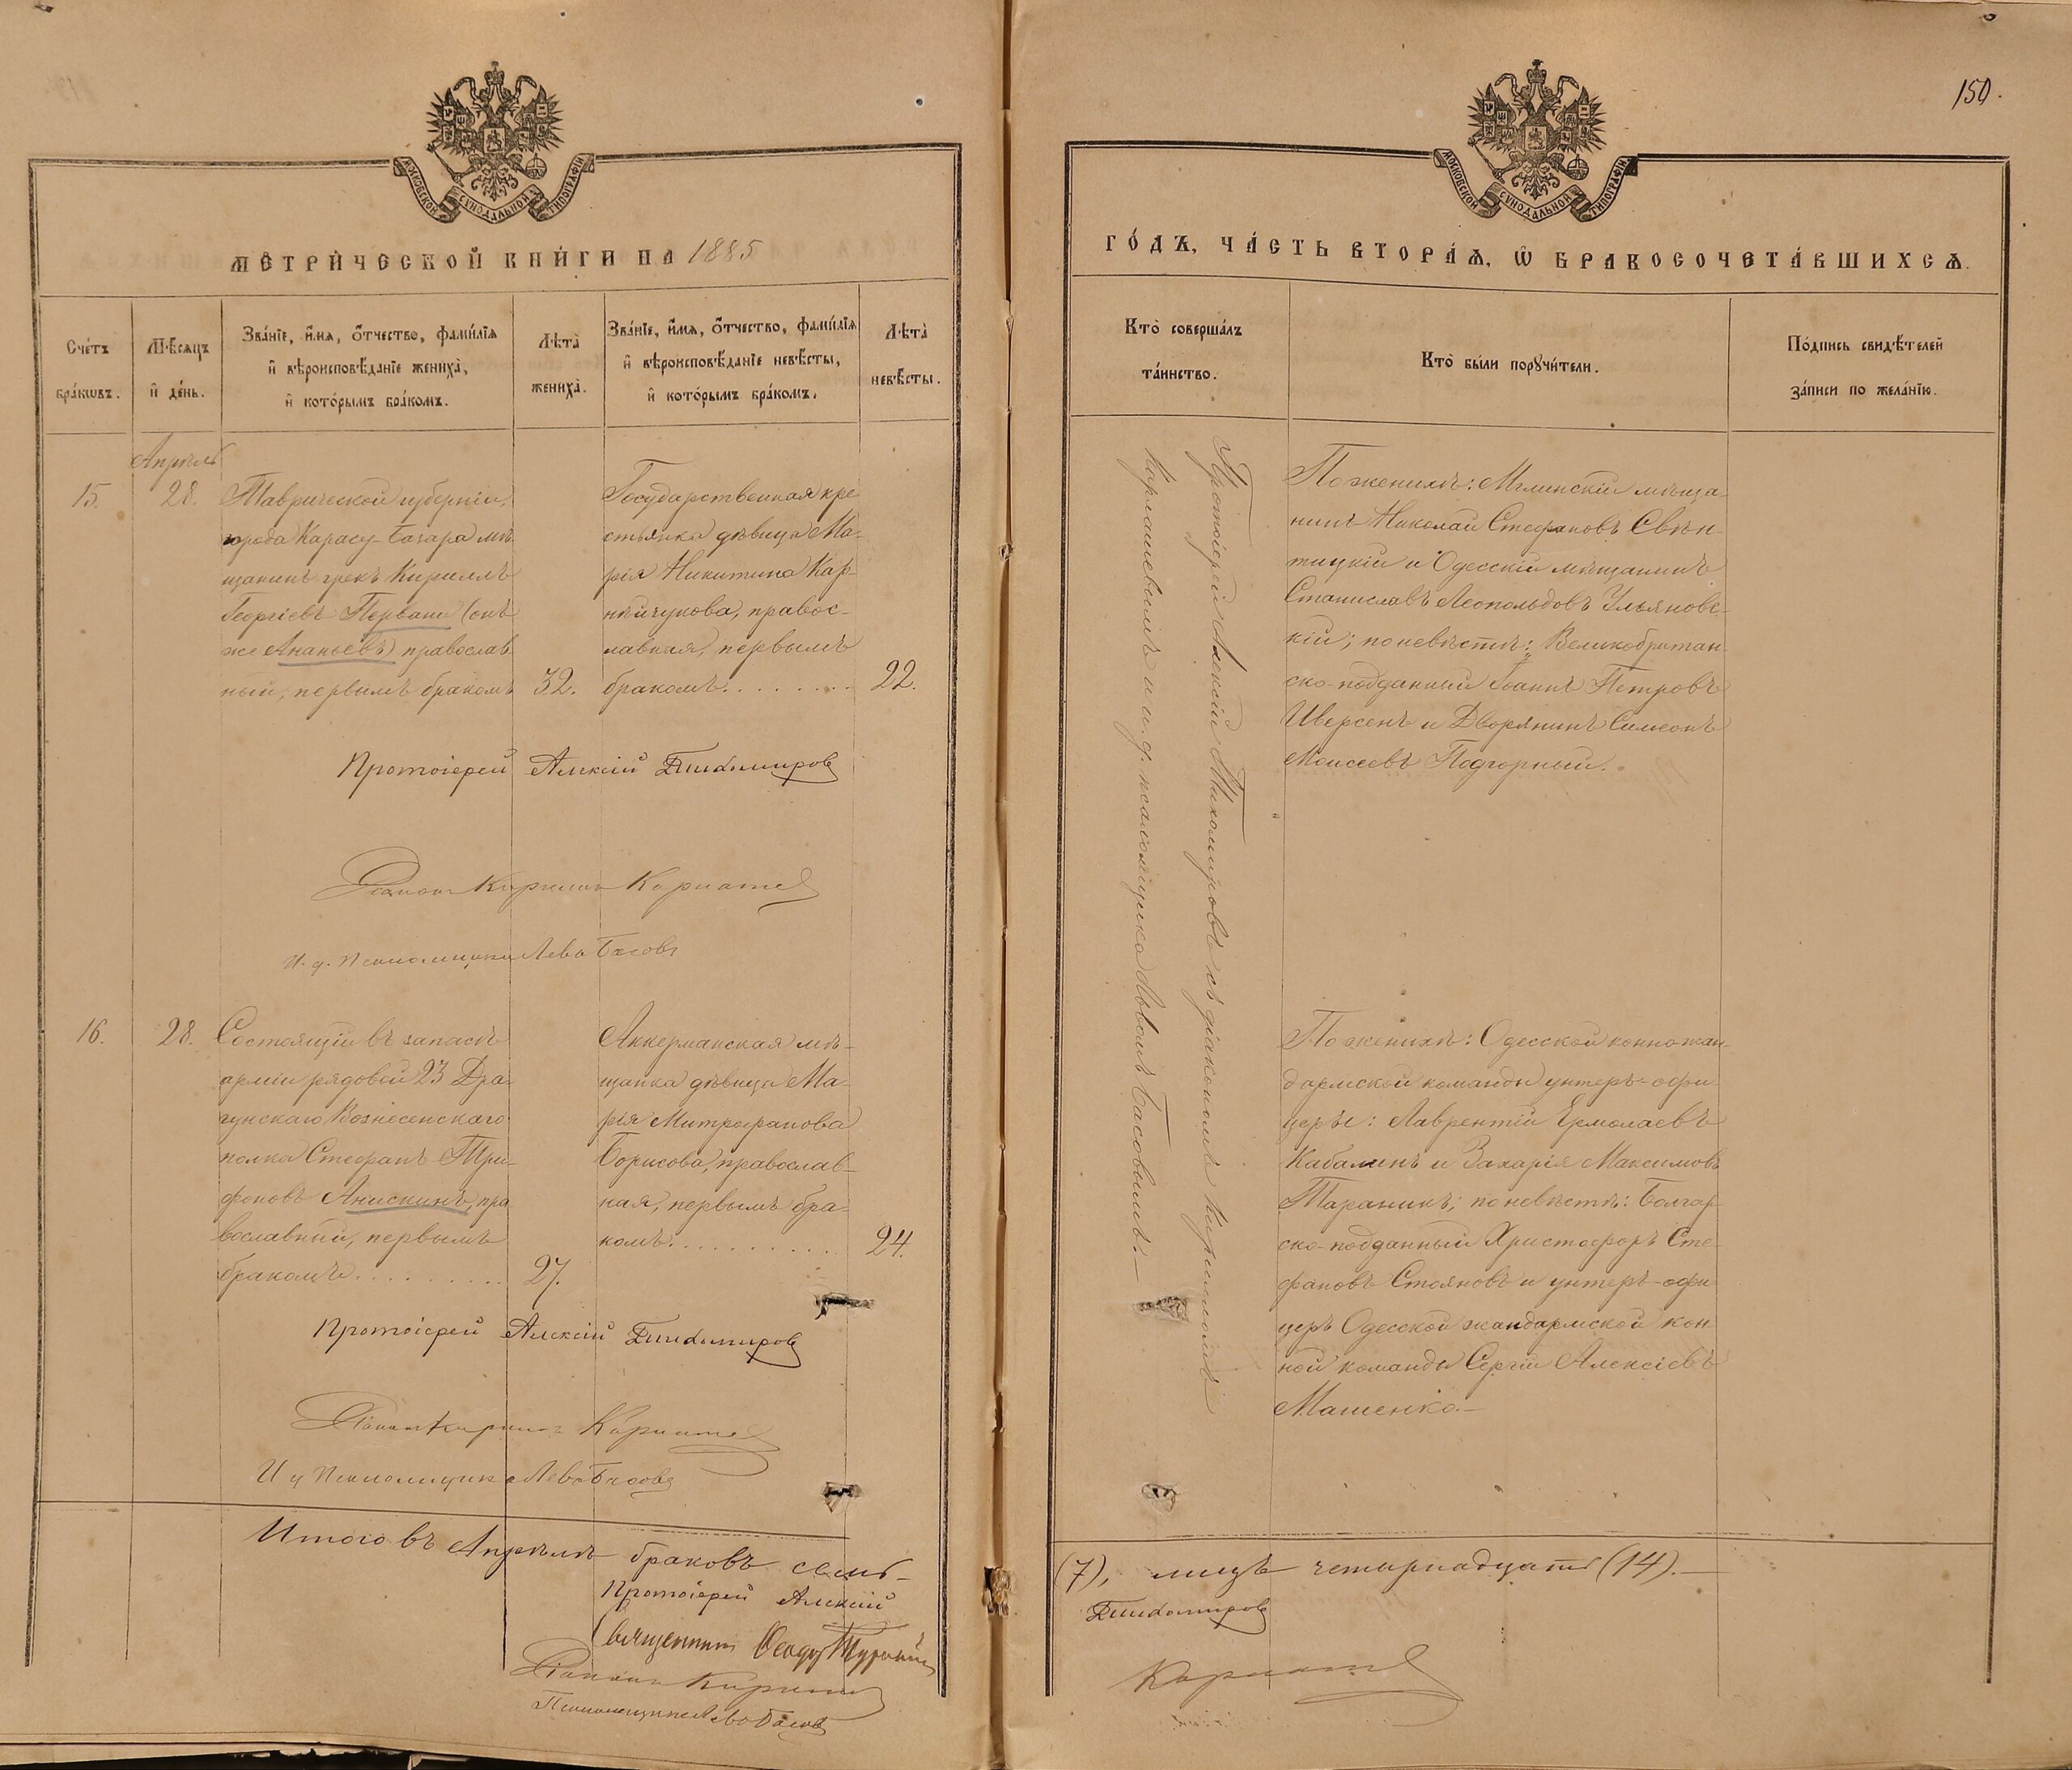 МОСКОВСКОЙ СѴНОДАЛЬНОЙ ТИПОГРАФІИ
МЕТРИ́ЧЕСКОЙ КНИ́ГИ НА 1885
Сче́тъ бра́кѡвъ.
Мѣ́сѧцъ и҆ де́нь.
Зва́нїе, и҆́мѧ, ѻ҆́тчество, фами́лїѧ
и҆ вѣроисповѣ́данїе жениха̀,
и҆ кото́рымъ бра́комъ.
Лѣта̀ жениха̀.
Зва́нїе, и҆́мѧ, ѻ҆́тчество, фами́лїѧ
и҆ вѣроисповѣ́данїе невѣ́сты,
и҆ кото́рымъ бра́комъ.
Лѣта̀ невѣ́сты.
Апрѣль
15.
28.
Таврической губерніи,
города Карасу-Базара мѣ
щанинъ грекъ Кириллъ
Георгіевъ Первани (онъ
же Ананьевъ) православ
ный, первымъ бракомъ
32.
Государственная кре
стьянка дѣвица Ма-
рія Никитина Кор-
нѣйчукова, правос-
лавная, первымъ
бракомъ.........
22.
Протоіерей Алексій Тихомировъ
Діаконъ Кириллъ Кармаше
И. д. Псаломщика Левъ Басовъ
16.
28.
Состоящій въ запасѣ
арміи рядовой 23 Дра-
гунскаго Вознесенскаго
полка Стефанъ Три-
фоновъ Анискинъ, пра
вославный, первымъ
бракомъ.........
27.
Аккерманская мѣ-
щанка дѣвица Ма-
рія Митрофанова
Борисова, православ-
ная, первымъ бра-
комъ..........
24.
Протоіерей Алексій Тихомировъ
Діаконъ Кириллъ Кармаше
И д Псаломщика Левъ Басовъ
Итого въ Апрѣлѣ браковъ семь-
Протоіерей Алексій
Священникъ
Діаконъ Кириллъ
Псаломщикъ Левъ Басовъ
150.
МОСКОВСКОЙ СѴНОДАЛЬНОЙ ТИПОГРАФІИ
ГО́ДЪ, ЧА́СТЬ ВТОРА́Ѧ, Ѡ҆ БРАКОСОЧЕТА́ВШИХСѦ.
Кто̀ соверша́лъ
та́инство.
Кто̀ бы́ли порꙋчи́тели.
По́дпись свидѣ́телей
за́писи по жела́нїю.
Протоіерей Алексій Тихомировъ съ діакономъ Кирилломъ
Кармашевымъ и и. д. псаломщика Львомъ Басовымъ.-
По женихѣ: Мглинскій мѣща-
нинъ Николай Стефановъ Свѣн-
тицкій и Одесскій мѣщанинъ
Станиславъ Леопольдовъ Ульяновс-
кій; по невѣстѣ: Великобритан
ско-подданный Іоаннъ Петровъ
Иверсенъ и Дворянинъ Симеонъ
Моисеевъ Подгорный.
По женихѣ: Одесской конножан-
дармской команды унтеръ-офи
церы: Лаврентій Ермолаевъ
Кабалинъ и Захарія Максимовъ
Таранинъ; по невѣстѣ: Болгар-
ско-подданный Христофоръ Сте-
фановъ Стояновъ и унтеръ-офи
церъ Одесской жандармской кон
ной команды Сергій Алексіевъ
Машенко.-
(7), лицъ четырнадцать (14).-
Тихомировъ
Кармаше